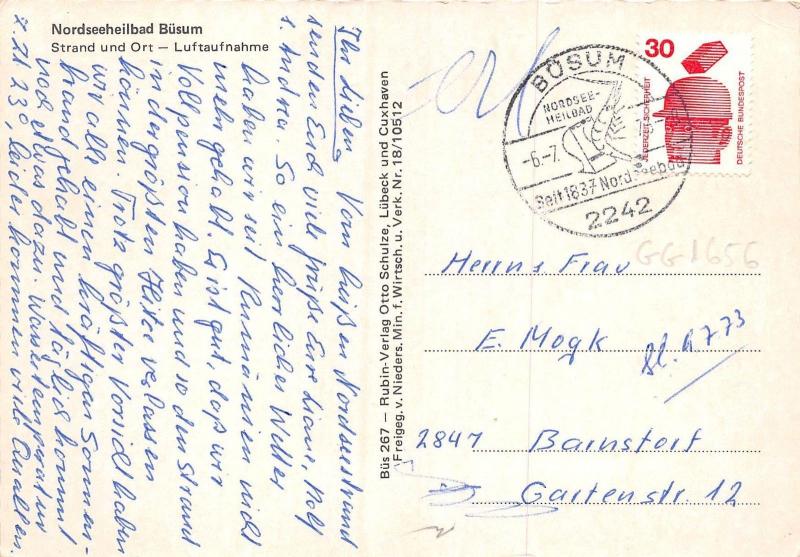 Nordseeheilbad Büsum
Strand und Ort — Luftaufnahme
Ihr Lieben, Vom heißen Nordseestrand
senden Euch viele Grüße Eure Liane, Rolf
u. Andrea. So ein herrliches Wetter
haben wir seit Rumänien nicht
mehr gehabt. Es ist gut, daß wir
Vollpension haben und so den Strand
in der größten Hitze verlassen
können. Trotz größter Vorsicht haben
wir alle einen kräftigen Sonnen-
brand gehabt und täglich kommt
noch etwas dazu. Wassertemperatur
z. Zt. 23°, leider kommen viele Quallen
Büs 267 — Rubin-Verlag Otto Schulze, Lübeck und Cuxhaven
Freigeg. v. Nieders. Min. f. Wirtsch. u. Verk. Nr. 18/10512
BÜSUM
NORDSEE-
HEILBAD
-6.-7.
Seit 1837 Nordseebad
2242
30
JEDERZEIT SICHERHEIT
DEUTSCHE BUNDESPOST
GG1656
Herrn u. Frau
E. Mogk
2847 Barnstorf
Gartenstr. 12